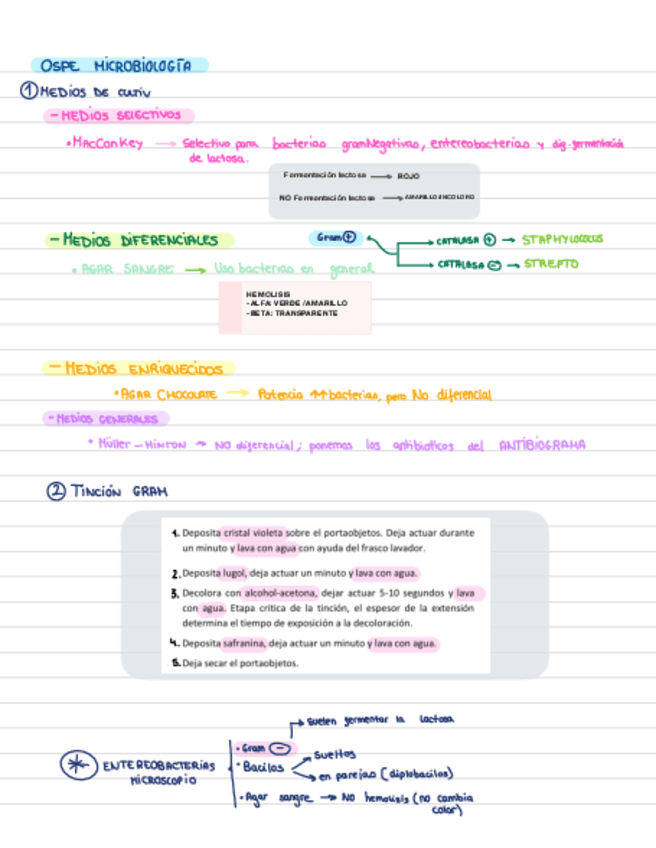 OSPE MICROBIOLOGÍA
① MEDIOS DE CULTIV
- MEDIOS SELECTIVOS
• MacConkey → Selectivo para bacterias gramNegativas, entereobacterias y
de lactosa.
Fermentación lactosa → ROJO
NO Fermentación lactosa → AMARILLO/INCOLORO
- MEDIOS DIFERENCIALES
Gram ⊕
CATALASA ⊕ → STAPHYLOCOCUS
• AGAR SANGRE → Uso bacterias en general
CATALASA ⊖ → STREPTO
HEMOLISIS
-ALFA: VERDE /AMARILLO
-BETA: TRANSPARENTE
- MEDIOS ENRIQUECIDOS
• AGAR CHOCOLATE → Potencia ↑↑ bacterias, pero No diferencial
- MEDIOS GENERALES
• Müller-HINTON → NO diferencial; ponemos los antibioticos del ANTIBIOGRAMA
② TINCIÓN GRAM
1. Deposita cristal violeta sobre el portaobjetos. Deja actuar durante
un minuto y lava con agua con ayuda del frasco lavador.
2. Deposita lugol, deja actuar un minuto y lava con agua.
3. Decolora con alcohol-acetona, dejar actuar 5-10 segundos y lava
con agua. Etapa crítica de la tinción, el espesor de la extensión
determina el tiempo de exposición a la decoloración.
4. Deposita safranina, deja actuar un minuto y lava con agua.
5. Deja secar el portaobjetos.
→ suelen fermentar la lactosa
• Gram ⊖
* ENTEREOBACTERIAS
MICROSCOPIO
• Bacilos
→ sueltos
→ en parejas (diplobacilos)
• Agar sangre → No hemolisis (no cambia
color)